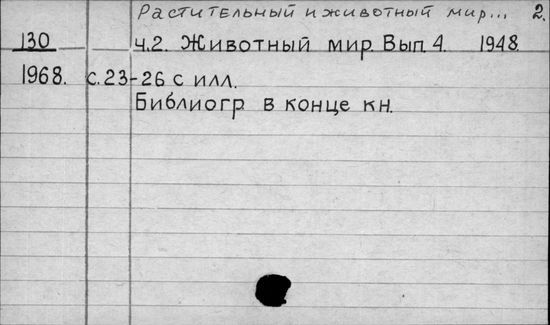 Растительный и животный мир... 2.
130 ч.2. Животный мир. Вып. 4. 1948.
1968. с. 23-26 с илл.
Библиогр в конце кн.